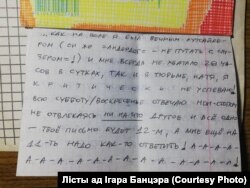 „КАК НА ВОЛЕ Я БЫЛ ВЕЧНЫМ
(ОН ЖЕ - НЕ ПУТАТЬ С
=) И МНЕ ВСЕГДА НЕ ХВАТАЛО
СОВ В СУТКАХ, ТАК И В ТЮРЬМЕ, КАТЯ, Я
К Р И Т И Ч Е С К И НЕ УСПЕВАЮ
ВСЮ СУББОТУ/ВОСКРЕСЕНЬЕ ОТВЕЧАЮ
НЕ ОТВЛЕКАЯСЬ НА ДРУГОЕ И ВСЁ ОДНО
- ТВОЁ ПИСЬМО БУДЕТ 12-М, А МНЕ ЕЩЁ НА
11-ТЬ НАДО КАК-ТО ОТВЕТИТЬ!
А-А-А-А-А-А-А-А-А-А-А-А-А
Лісты ад Ігара Банцэра (Courtesy Photo)